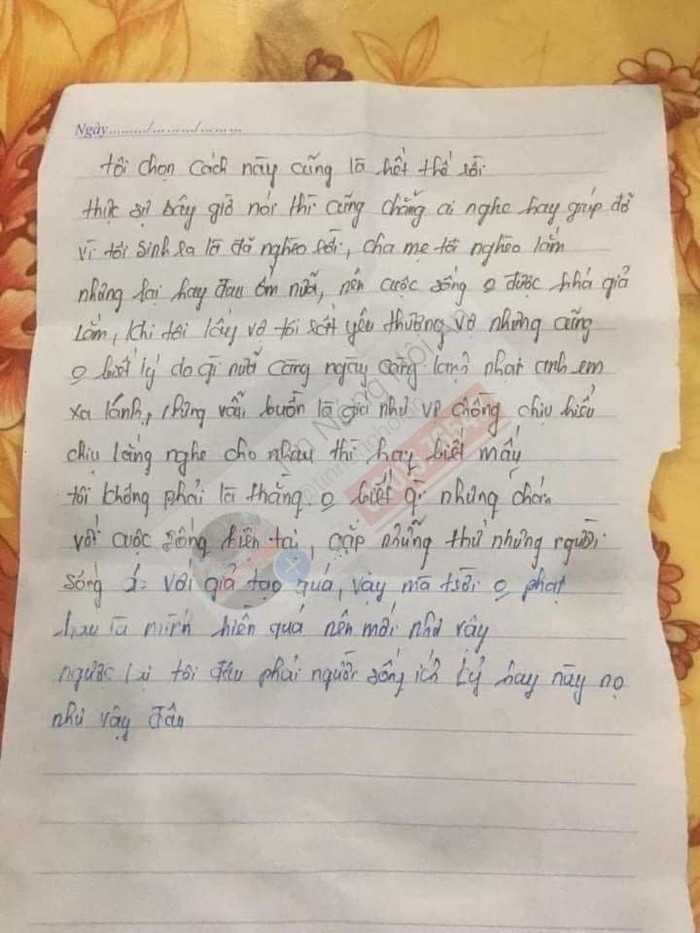 Ngày........./......../........
tôi chọn cách này cũng là hết thể rồi
thực sự bây giờ nói thì cũng chẳng ai nghe hay giúp đỡ
vì tôi sinh ra là đã nghèo rồi, cha mẹ tôi nghèo lắm
nhưng lại hay đau ốm nữa, nên cuộc sống o được khá giả
lắm, khi tôi lấy vợ tôi rất yêu thương vợ nhưng cũng
o biết lý do gì nữa càng ngày càng lạnh nhạt anh em
xa lánh, nhưng vẫn buồn là giá như vợ chồng chịu hiểu
chịu lắng nghe cho nhau thì hay biết mấy
tôi không phải là thằng o biết gì nhưng chán
với cuộc sống hiện tại, cặp những thứ những người
sống với giả tạo quá, vậy mà trời o phạt
hay là mình hiền quá nên mới như vậy
ngược lại tôi đâu phải người sống ích kỷ hay này nọ
như vậy đâu
Tin Nóng Hội An